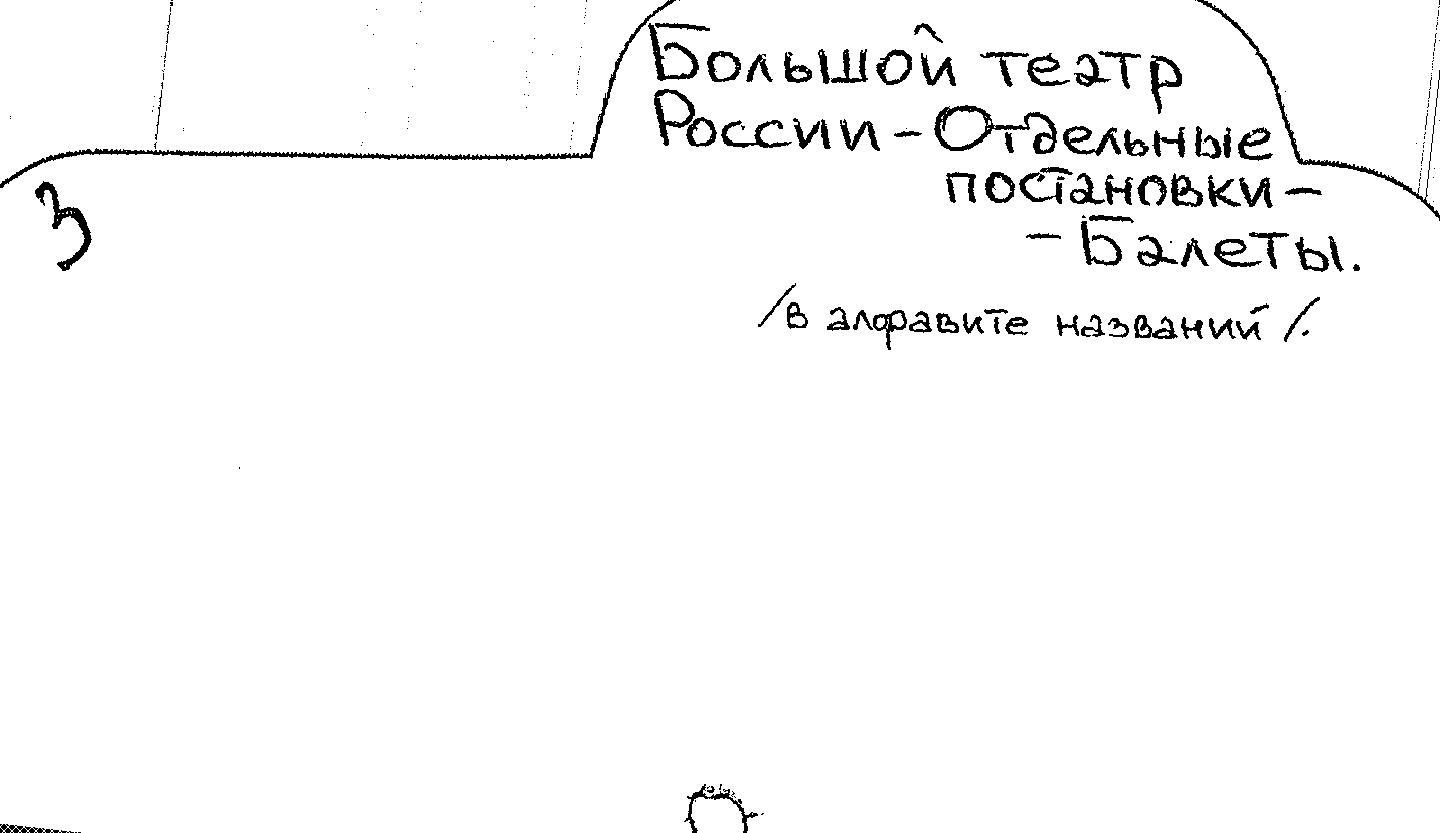 Большой театр
России - Отдельные
постановки -
- Балеты.
3
/в алфавите названий/.